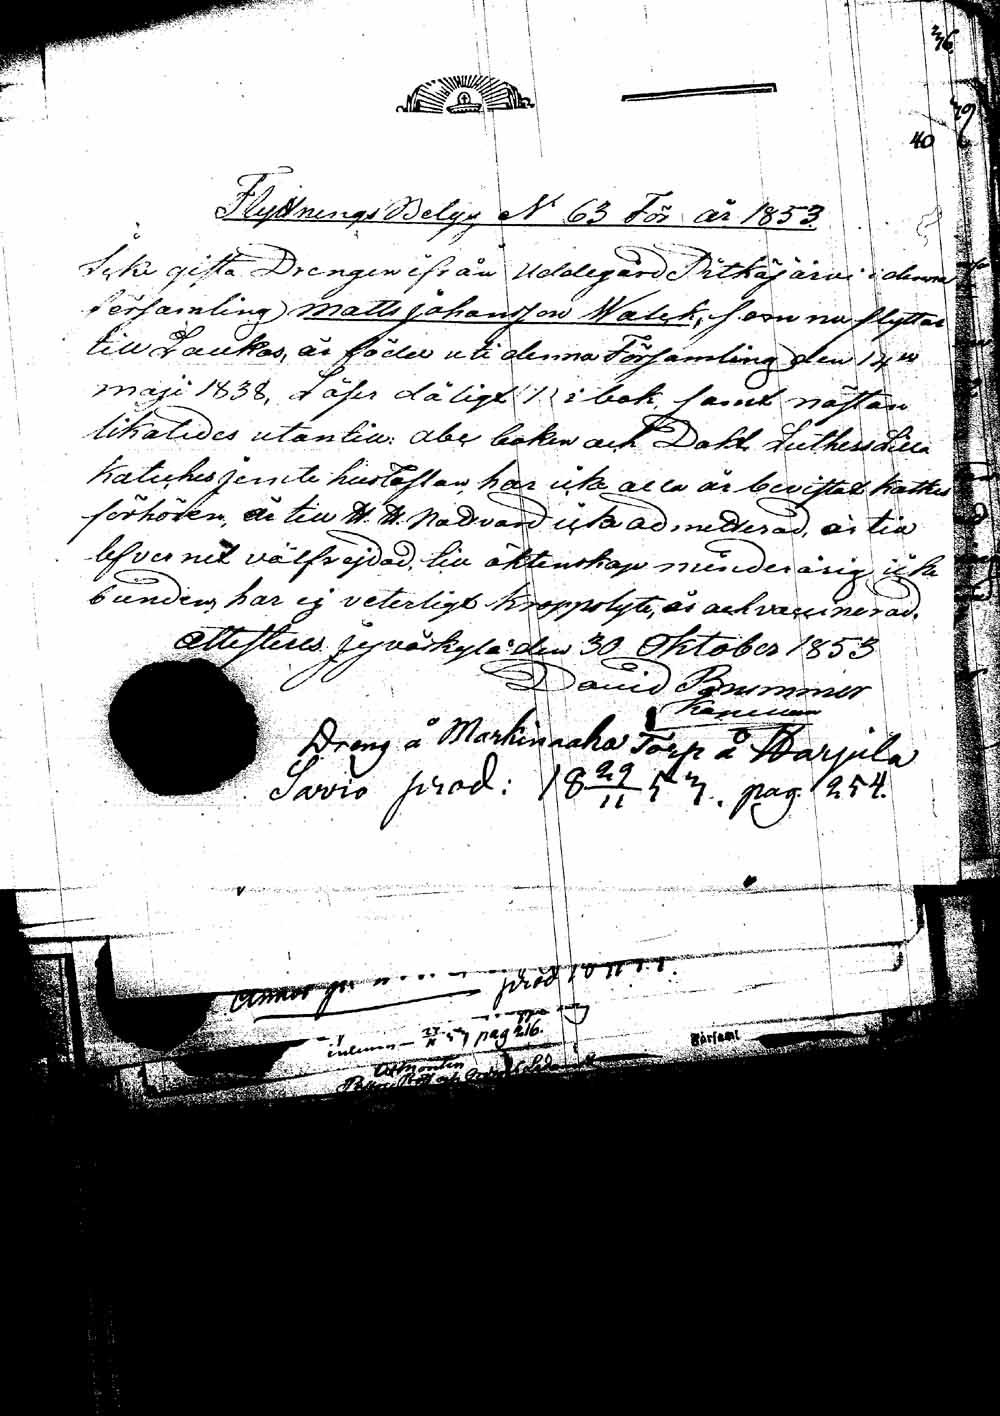 276
279
40
Flyttnings Betyg N 63 För år 1853.
Icke gifta Drengen ifrån Uddegård Pitkäjärvi i denna
församling Matts Johansson Walek, som nu flyttar
till Laukas, är föder uti denna Församling den 14
maji 1838, Läser dåligt i bok samt nästan
likaledes utantill: abc boken och Dokt Luthers Lilla
Katiches jemte hustaflan, har icke alla år bevistat Katkes
förhören, är till H. H. Nadvard icke admitterad, är till
lefvernet välfrejdad, till äktenskap minderårig icke
bunden, har ej veterligt kroppslyte, är ock vaccinerad.
Attesteres Jyväskylä den 30 Oktober 1853
David Brummer
Kapellan
Dreng å Markinaaho Torp å Harjula
Sarvio prod: 18 29/11 53. pag. 254.
prod
pag 216.
Församl